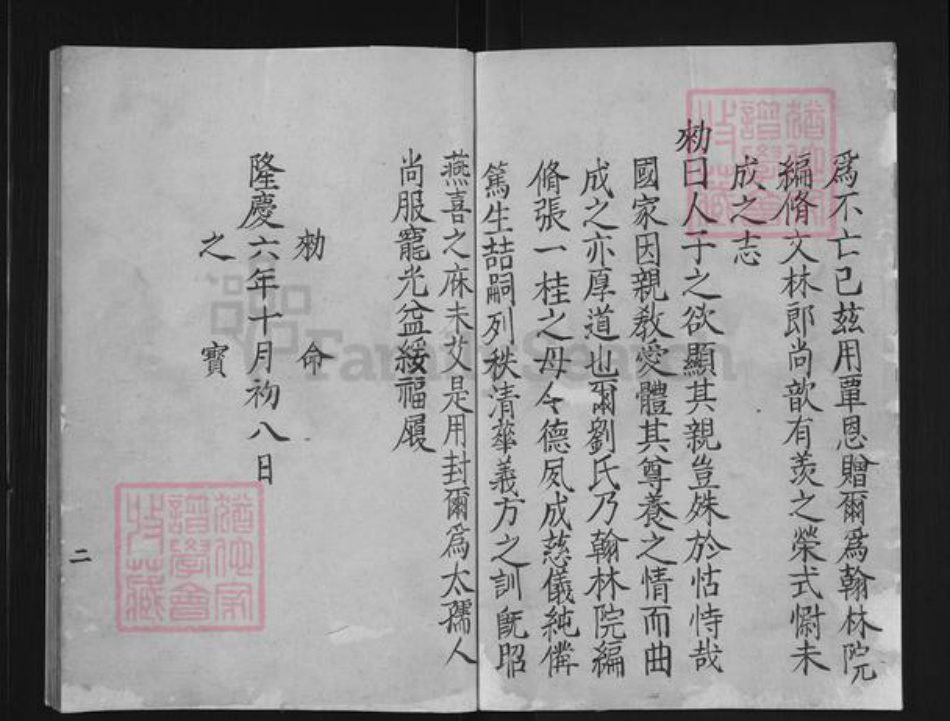 為不亡已玆用覃恩贈爾為翰林院
編脩文林郎尚歆有羨之榮式慰未
成之志
勑曰人子之欲顯其親豈殊於怙恃哉
國家因親教愛體其尊養之情而曲
成之亦厚道也爾劉氏乃翰林院編
脩張一桂之母令德夙成慈儀純備
篤生喆嗣列秩清華義方之訓旣昭
燕喜之庥未艾是用封爾為太孺人
尚服寵光益綏福履
勑命
隆慶六年十月初八日
之寳
二
FamilySearch